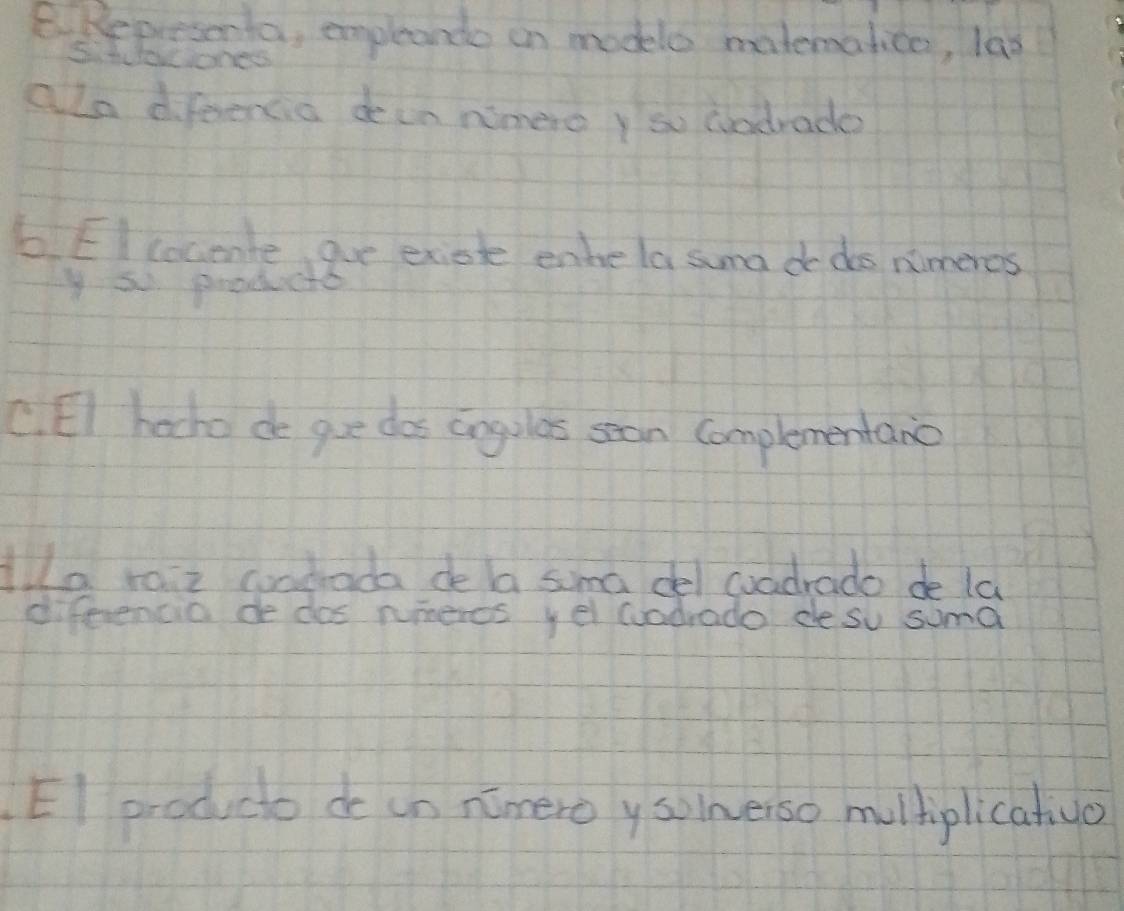 8. Representa, empleando un modelo matematico, las
situaciones
a. La diferencia de un número y su cuadrado
b. El cociente que existe entre la suma de dos números
y su producto
c. El hecho de que dos ángulos sean complementario
d. La raiz cuadrada de la suma del cuadrado de la
diferencia de dos números y el cuadrado de su suma
. El producto de un número y su inverso multiplicativo